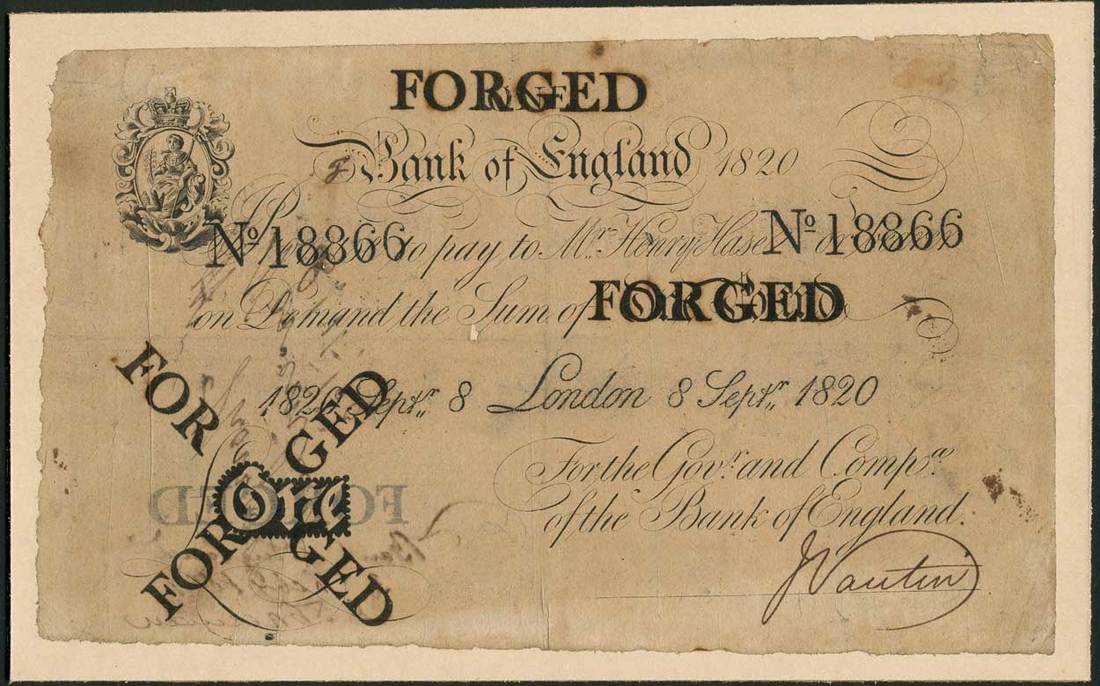 FORGED
Bank of England 1820
Nº 18866 to pay to Mr. Henry Hase Nº 18866
on Demand the Sum of FORGED
1820 Septr. 8 London 8 Septr. 1820
FORGED
FORGED
One
For the Govr. and Compa.
of the Bank of England.
J Vautin
FORGED